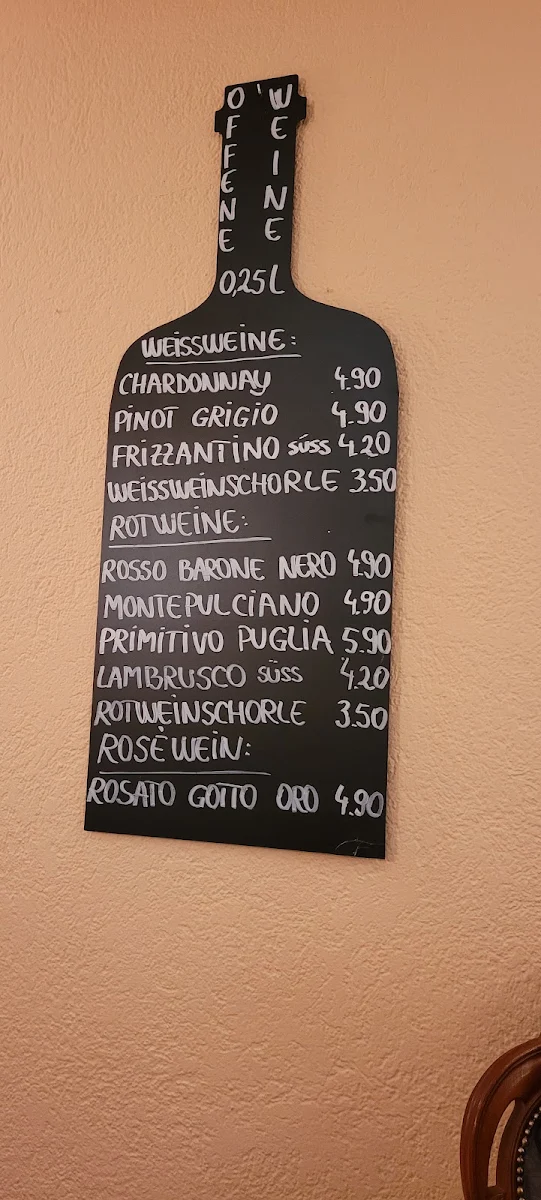 OFFENE
WEINE
0,25L
WEISSWEINE:
CHARDONNAY 4.90
PINOT GRIGIO 4.90
FRIZZANTINO süss 4.20
WEISSWEINSCHORLE 3.50
ROTWEINE:
ROSSO BARONE NERO 4.90
MONTEPULCIANO 4.90
PRIMITIVO PUGLIA 5.90
LAMBRUSCO süss 4.20
ROTWEINSCHORLE 3.50
ROSÈWEIN:
ROSATO GOTTO ORO 4.90